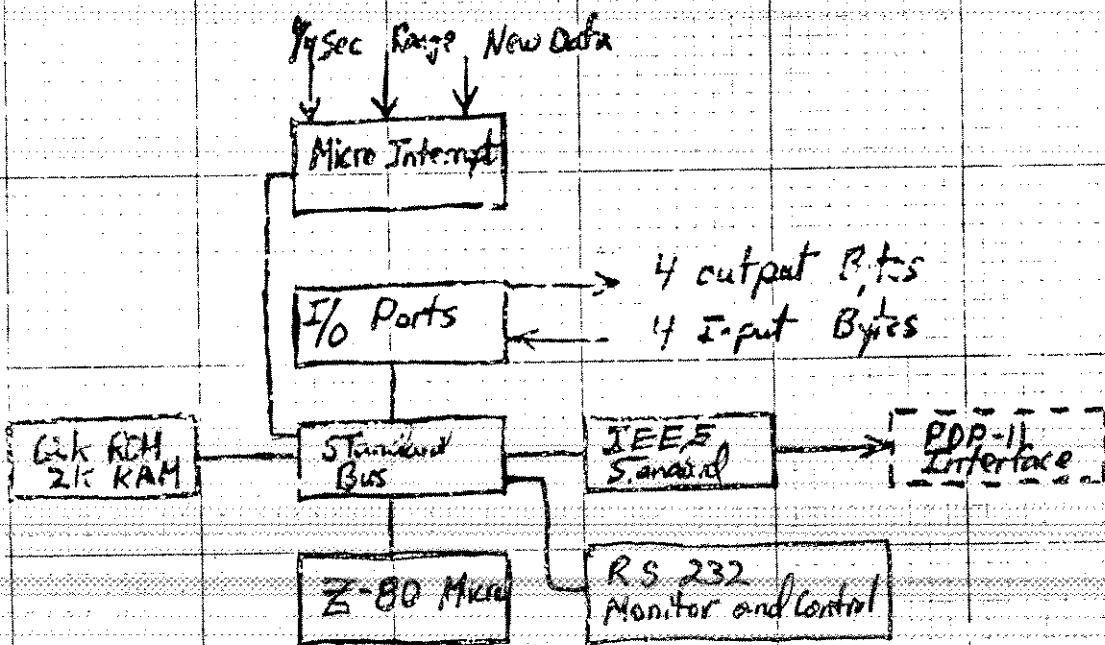 Range New Data
Micro Interrupt
4 output Bytes
I/O Ports
4 Input Bytes
ROM
2k RAM
Standard
Bus
IEEE
Standard
PDP-11
Interface
Z-80 Micro
RS 232
Monitor and Control